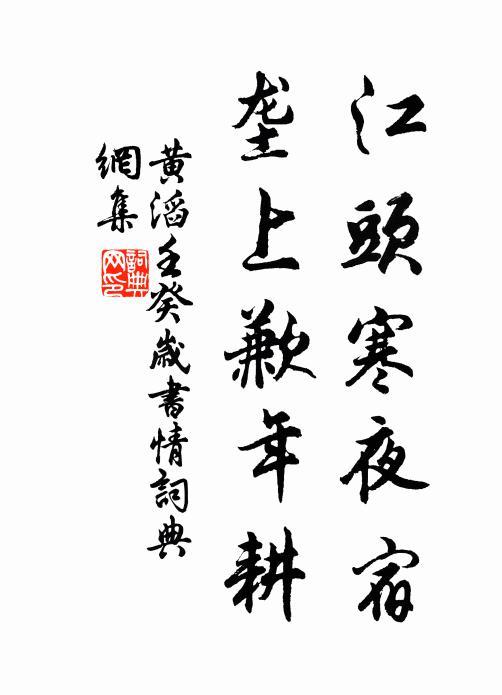 江頭寒夜宿
垄上歉年耕
黄滔壬癸歲書情詞典
網集
詞典网印